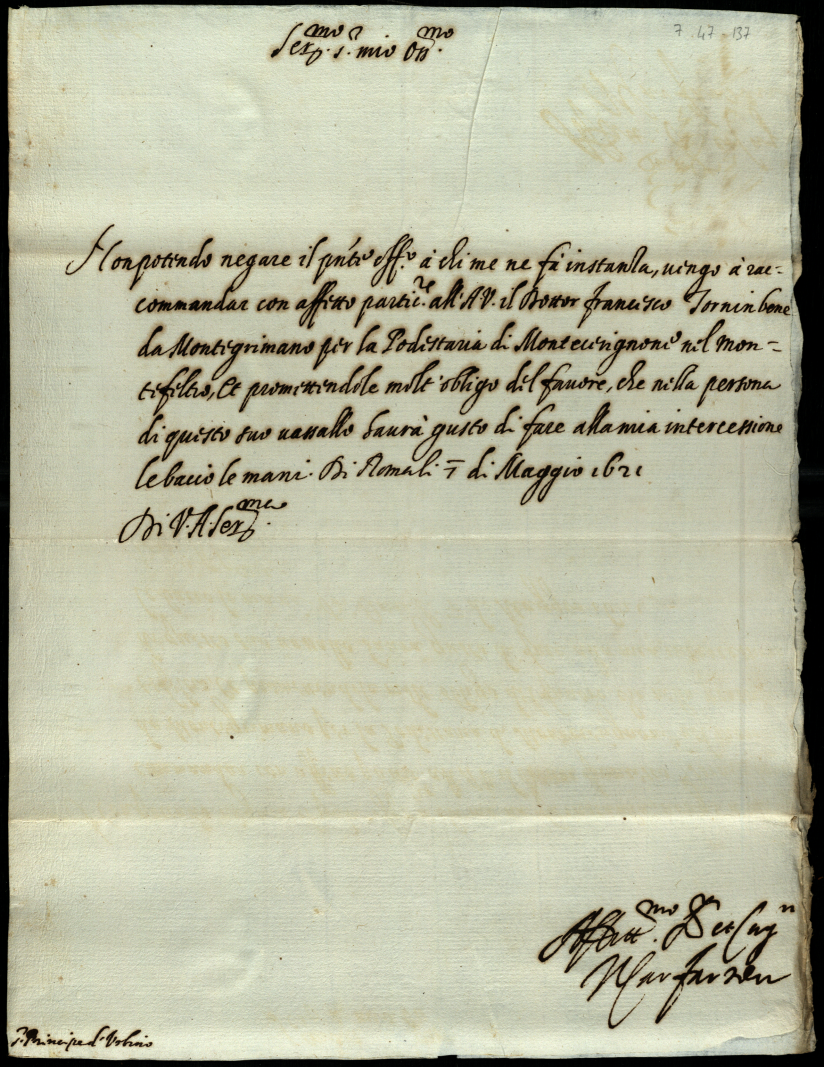 7 47 137
Ser.mo S.r mio oss.mo
Non potendo negare il pn̄te off.o à chi me ne fà instanza, uengo à rac=
commandar con affetto partic.re all'A.V. il Dottor francesco Torninbene
da Montegrimano per la Podestaria di Montecerignone nel mon=
tefeltro, Et promettendole molt'obligo del fauore, che nella persona
di questo suo uassallo haurà gusto di fare alla mia intercessione
le bacio le mani. Di Roma li 7 di Maggio 1621
Di V.A. Ser.ma
Aff.mo et Cug.n
Il Car farnese
S.r Principe d'Urbino